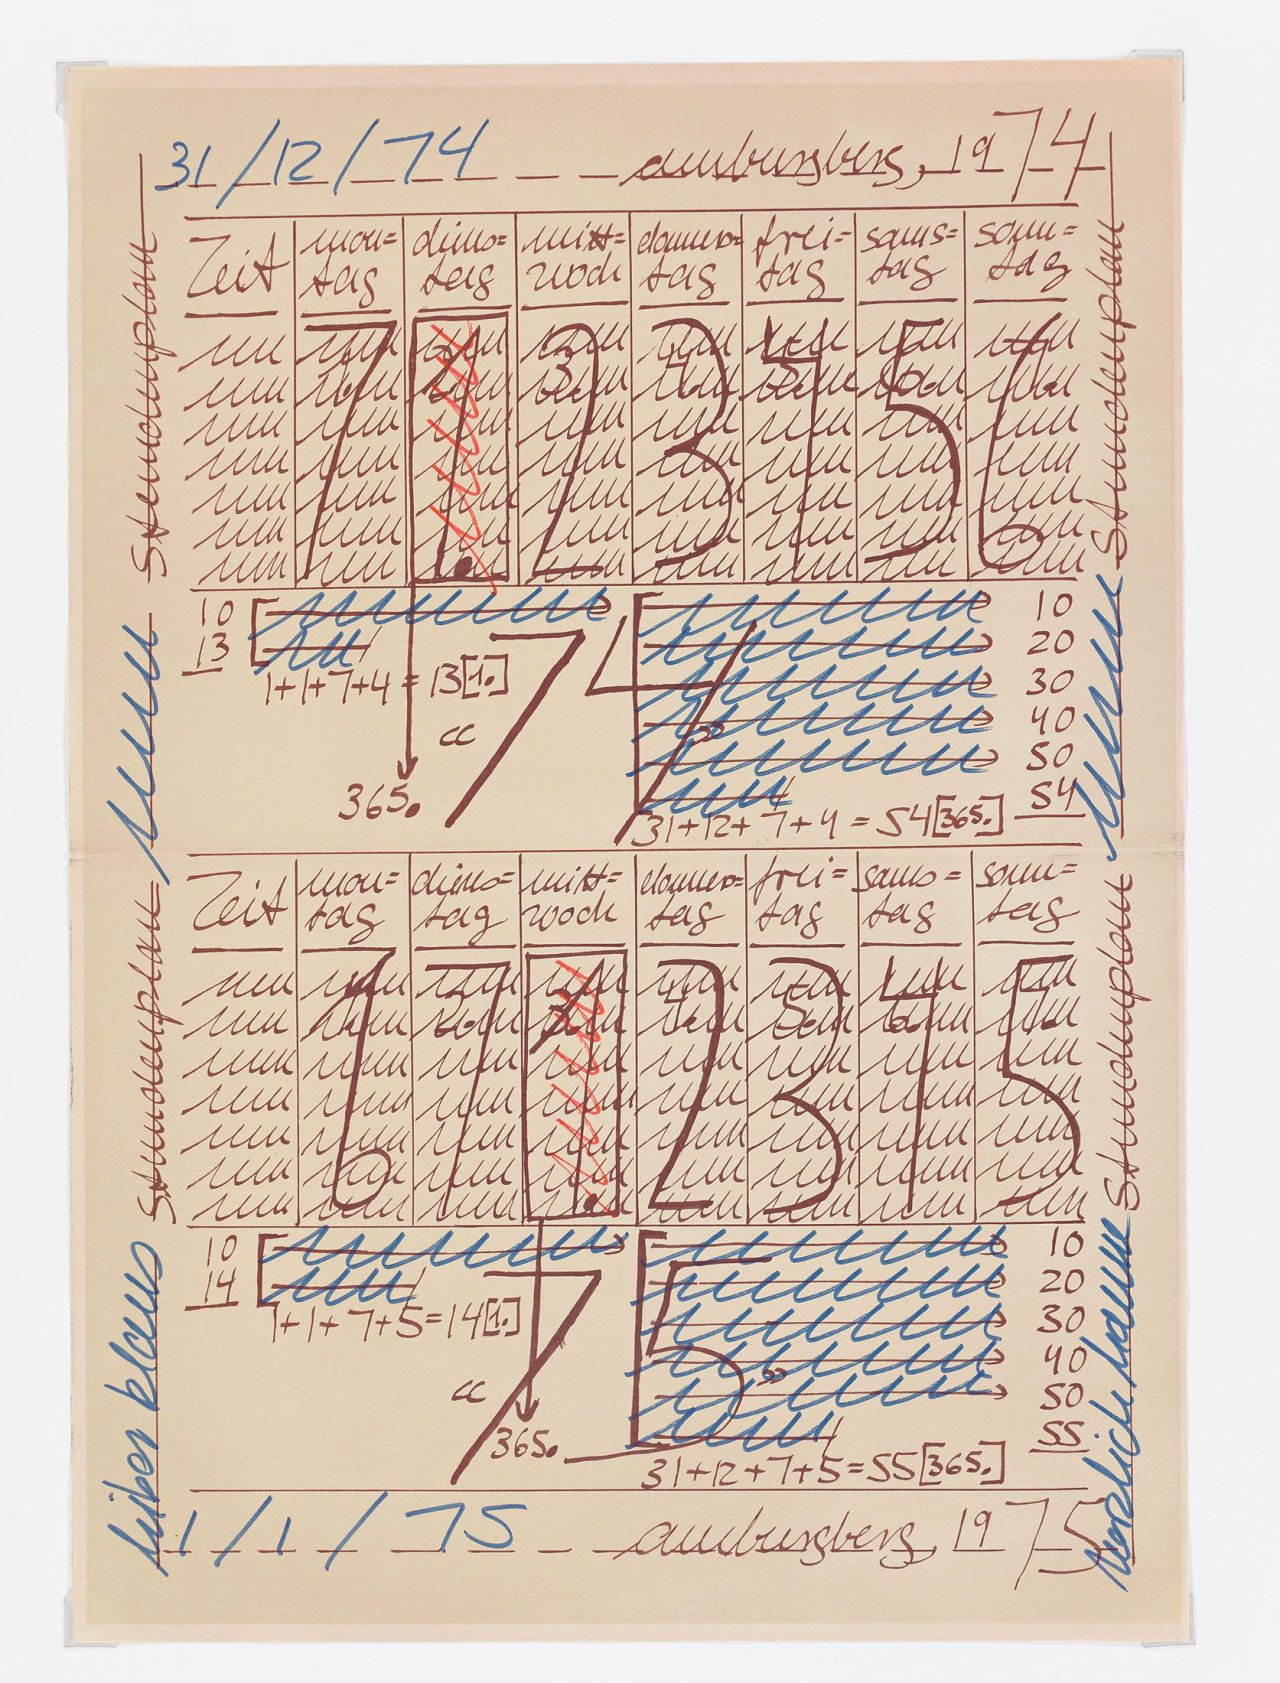 31/12/74 amburgberg, 1974
Zeit mon= diens= mitt= donners= frei= sams= sonn=
tag tag woch tag tag tag tag
1 1. 2 3 4 5 6
10
13
1+1+7+4 = 13[1.]
365.
"74"
10
20
30
40
50
54
31+12+7+4 = 54[365.]
Zeit mon= diens= mitt= donners= frei= sams= sonn=
tag tag woch tag tag tag tag
6 7 1. 2 3 4 5
10
14
1+1+7+5=14[1.]
365.
"75"
10
20
30
40
50
55
31+12+7+5=55[365.]
1/1/75 amburgberg, 1975
Stundenplan
Stundenplan
lieber klaus
Stundenplan
Stundenplan
herzlich hanne